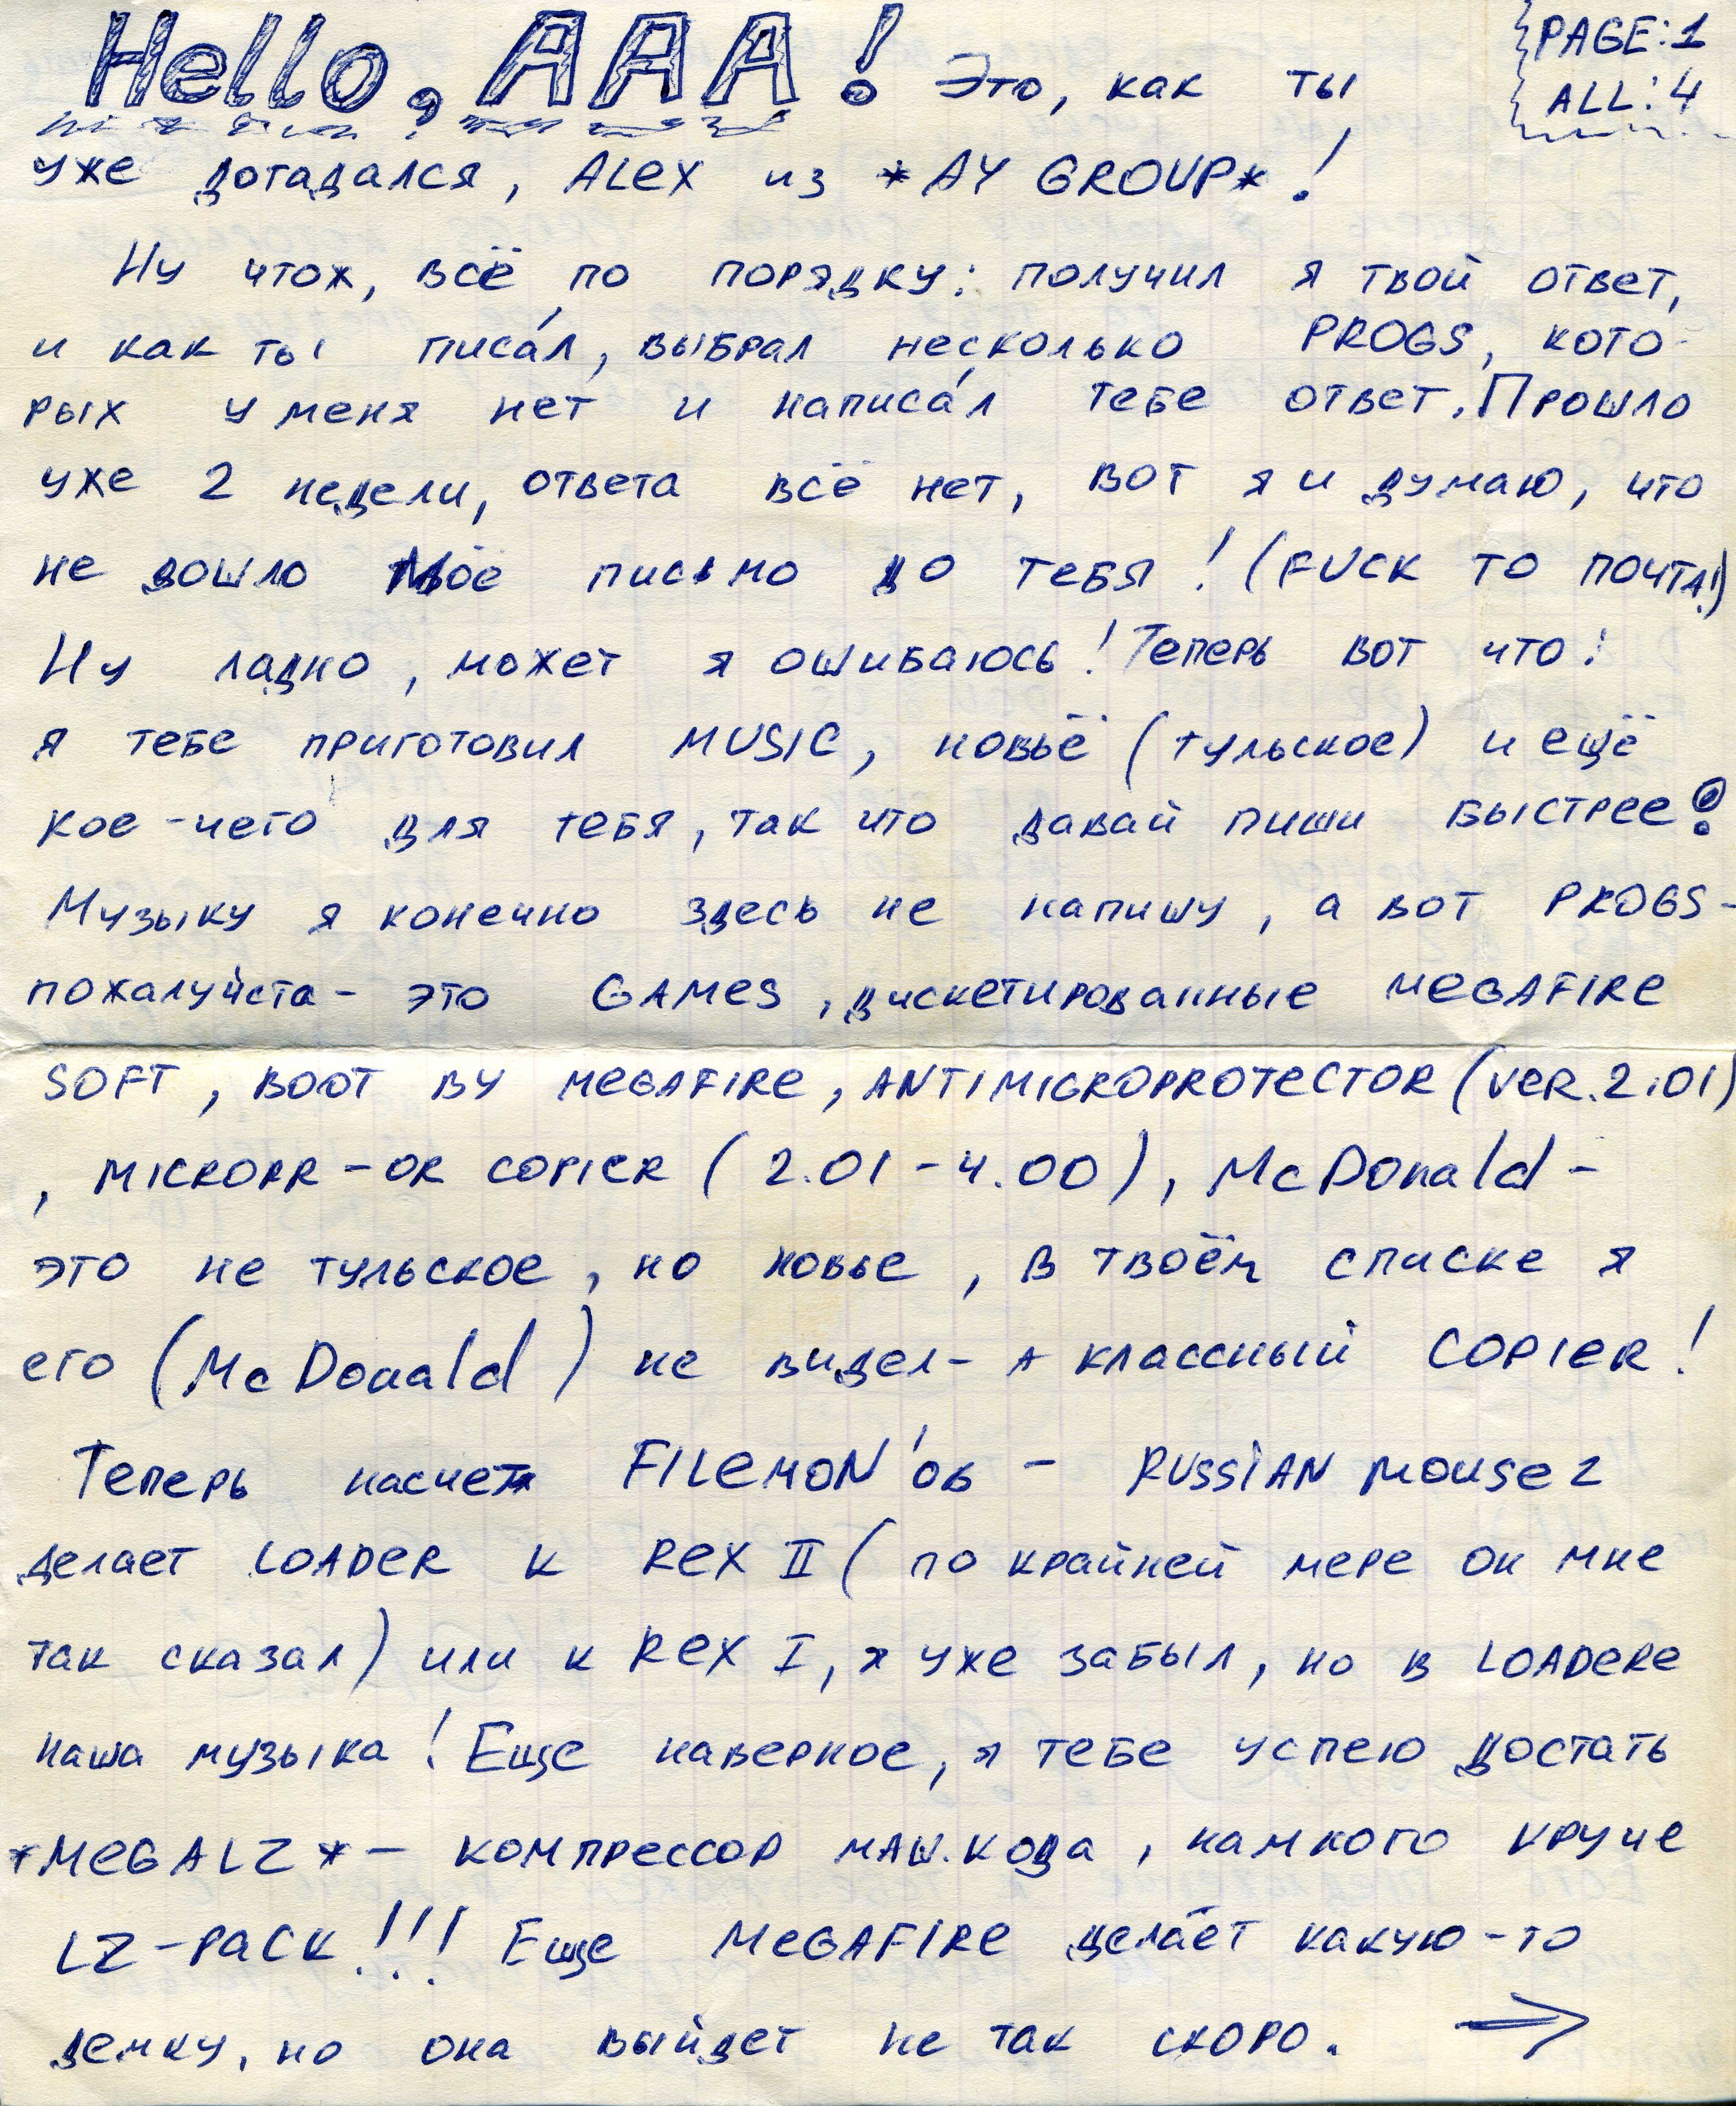 Hello, AAA! Это, как ты
PAGE:1
ALL:4
уже догадался, ALEX из *AY GROUP*!
Ну чтож, всё по порядку: получил я твой ответ,
и как ты писа́л, выбрал несколько PROGS, кото-
рых у меня нет и написа́л тебе ответ. Прошло
уже 2 недели, ответа всё нет, вот я и думаю, что
не дошло моё письмо до тебя! (FUCK TO ПОЧТА!)
Ну ладно, может я ошибаюсь! Теперь вот что:
я тебе приготовил MUSIC, новьё (тульское) и ещё
кое-чего для тебя, так что давай пиши быстрее!
Музыку я конечно здесь не напишу, а вот PROGS-
пожалуйста - это GAMES, дискетированные MEGAFIRE
SOFT, BOOT BY MEGAFIRE, ANTIMICROPROTECTOR (VER.2.01)
, MICROPR-OR COPIER (2.01-4.00), McDonald-
это не тульское, но новье, в твоём списке я
его (McDonald) не видел - а классный COPIER!
Теперь насчет FILEMON'ов - RUSSIAN MOUSE 2
делает LOADER к REX II (по крайней мере он мне
так сказал) или к REX I, я уже забыл, но в LOADERе
наша музыка! Еще наверное, я тебе успею достать
*MEGALZ* - компрессор маш.кода, намного круче
LZ-PACK!!! Еще MEGAFIRE делает какую-то
демку, но она выйдет не так скоро. →